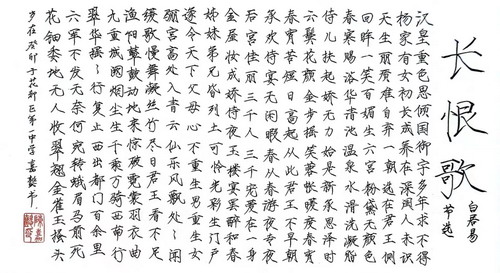 长恨歌
节选
白居易
汉皇重色思倾国御宇多年求不得
杨家有女初长成养在深闺人未识
天生丽质难自弃一朝选在君王侧
回眸一笑百媚生六宫粉黛无颜色
春寒赐浴华清池温泉水滑洗凝脂
侍儿扶起娇无力始是新承恩泽时
云鬓花颜金步摇芙蓉帐暖度春宵
春宵苦短日高起从此君王不早朝
承欢侍宴无闲暇春从春游夜专夜
后宫佳丽三千人三千宠爱在一身
金屋妆成娇侍夜玉楼宴罢醉和春
姊妹弟兄皆列土可怜光彩生门户
遂令天下父母心不重生男重生女
骊宫高处入青云仙乐风飘处々闻
缓歌慢舞凝丝竹尽日君王看不足
渔阳鼙鼓动地来惊破霓裳羽衣曲
九重城阙烟尘生千乘万骑西南行
翠华摇々行复止西出都门百余里
六军不发无奈何宛转蛾眉马前死
花钿委地无人收翠翘金雀玉搔头
岁在癸卯于第一中学嘉懿书